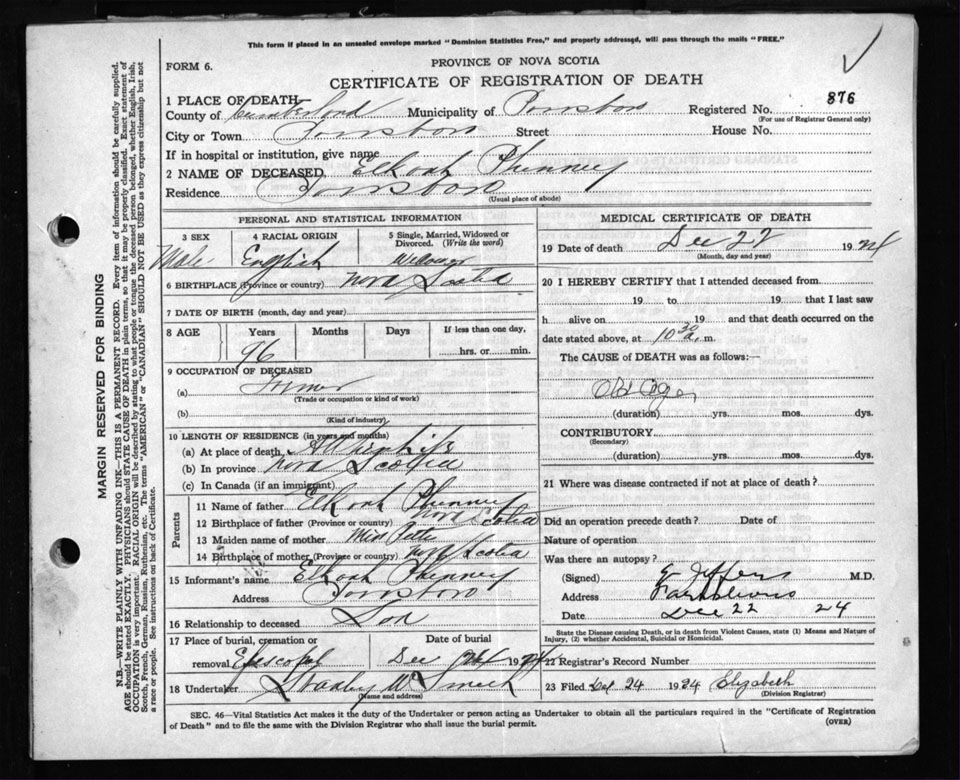 This form if placed in an unsealed envelope marked "Dominion Statistics Free," and properly addressed, will pass through the mails "FREE."
FORM 6.
PROVINCE OF NOVA SCOTIA
CERTIFICATE OF REGISTRATION OF DEATH
1 PLACE OF DEATH
County of Cumberland Municipality of Parrsboro Registered No. 876
(For use of Registrar General only)
City or Town Parrsboro Street House No.
If in hospital or institution, give name
2 NAME OF DECEASED Elkanah Phinney
Residence Parrsboro
(Usual place of abode)
PERSONAL AND STATISTICAL INFORMATION
3 SEX 4 RACIAL ORIGIN 5 Single, Married, Widowed or Divorced. (Write the word)
Male English Widower
6 BIRTHPLACE (Province or country) Nova Scotia
7 DATE OF BIRTH (month, day and year)
8 AGE Years Months Days If less than one day,
96 hrs. or min.
9 OCCUPATION OF DECEASED
(a) Farmer
(Trade or occupation or kind of work)
(b)
(Kind of industry)
10 LENGTH OF RESIDENCE (in years and months)
(a) At place of death All his life
(b) In province Nova Scotia
(c) In Canada (if an immigrant)
Parents
11 Name of father Elkanah Phinney
12 Birthplace of father (Province or country) Nova Scotia
13 Maiden name of mother Miss
14 Birthplace of mother (Province or country) Nova Scotia
15 Informant's name Elkanah Phinney
Address Parrsboro
16 Relationship to deceased Son
17 Place of burial, cremation or removal Episcopal Date of burial Dec 24 1924
18 Undertaker
(Name and address)
MEDICAL CERTIFICATE OF DEATH
19 Date of death Dec 22 1924
(Month, day and year)
20 I HEREBY CERTIFY that I attended deceased from
19 to 19 that I last saw
h alive on 19 and that death occurred on the
date stated above, at 10 30 a. m.
The CAUSE of DEATH was as follows:—
Old Age
(duration) yrs. mos. dys.
CONTRIBUTORY
(Secondary)
(duration) yrs. mos. dys.
21 Where was disease contracted if not at place of death?
Did an operation precede death? Date of
Nature of operation
Was there an autopsy?
(Signed) Jeffers M.D.
Address Parrsboro
Date Dec 22 24
State the Disease causing Death, or in death from Violent Causes, state (1) Means and Nature of
Injury, (2) whether Accidental, Suicidal or Homicidal.
22 Registrar's Record Number
23 Filed Dec 24 1924 Elizabeth
(Division Registrar)
SEC. 46—Vital Statistics Act makes it the duty of the Undertaker or person acting as Undertaker to obtain all the particulars required in the "Certificate of Registration
of Death" and to file the same with the Division Registrar who shall issue the burial permit.
(OVER)
MARGIN RESERVED FOR BINDING
N.B.—WRITE PLAINLY WITH UNFADING INK—THIS IS A PERMANENT RECORD. Every item of information should be carefully supplied.
AGE should be stated EXACTLY. PHYSICIANS should STATE CAUSE OF DEATH in plain terms, so that it may be properly classified. Exact statement of
OCCUPATION is very important. RACIAL ORIGIN will be described by stating to what people or tongue the deceased person belonged, whether English, Irish,
Scotch, French, German, Russian, Ruthenian, etc. The terms "AMERICAN" or "CANADIAN" SHOULD NOT BE USED as they express citizenship but not
a race or people. See instructions on back of Certificate.